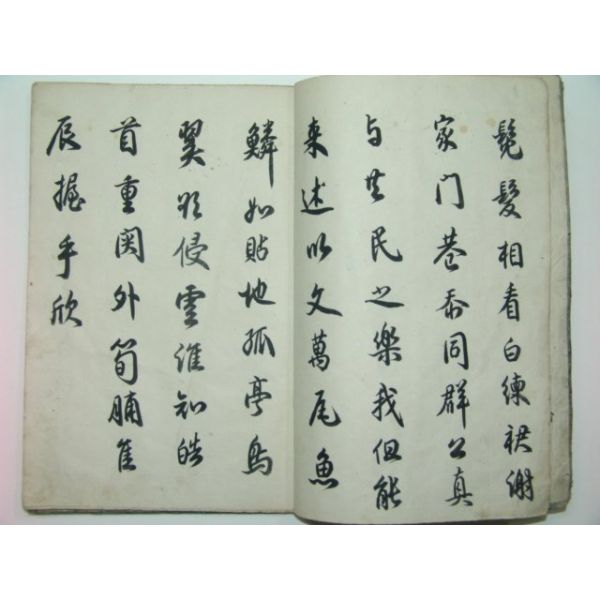 髮相看白練裙謝
家门巷忝同群公真
与其民之樂我但能
来述以文萬尾魚
鱗如貼地孤亭鳥
翼欲侵雲誰知皓
首重関外筍脯佳
辰握手欣